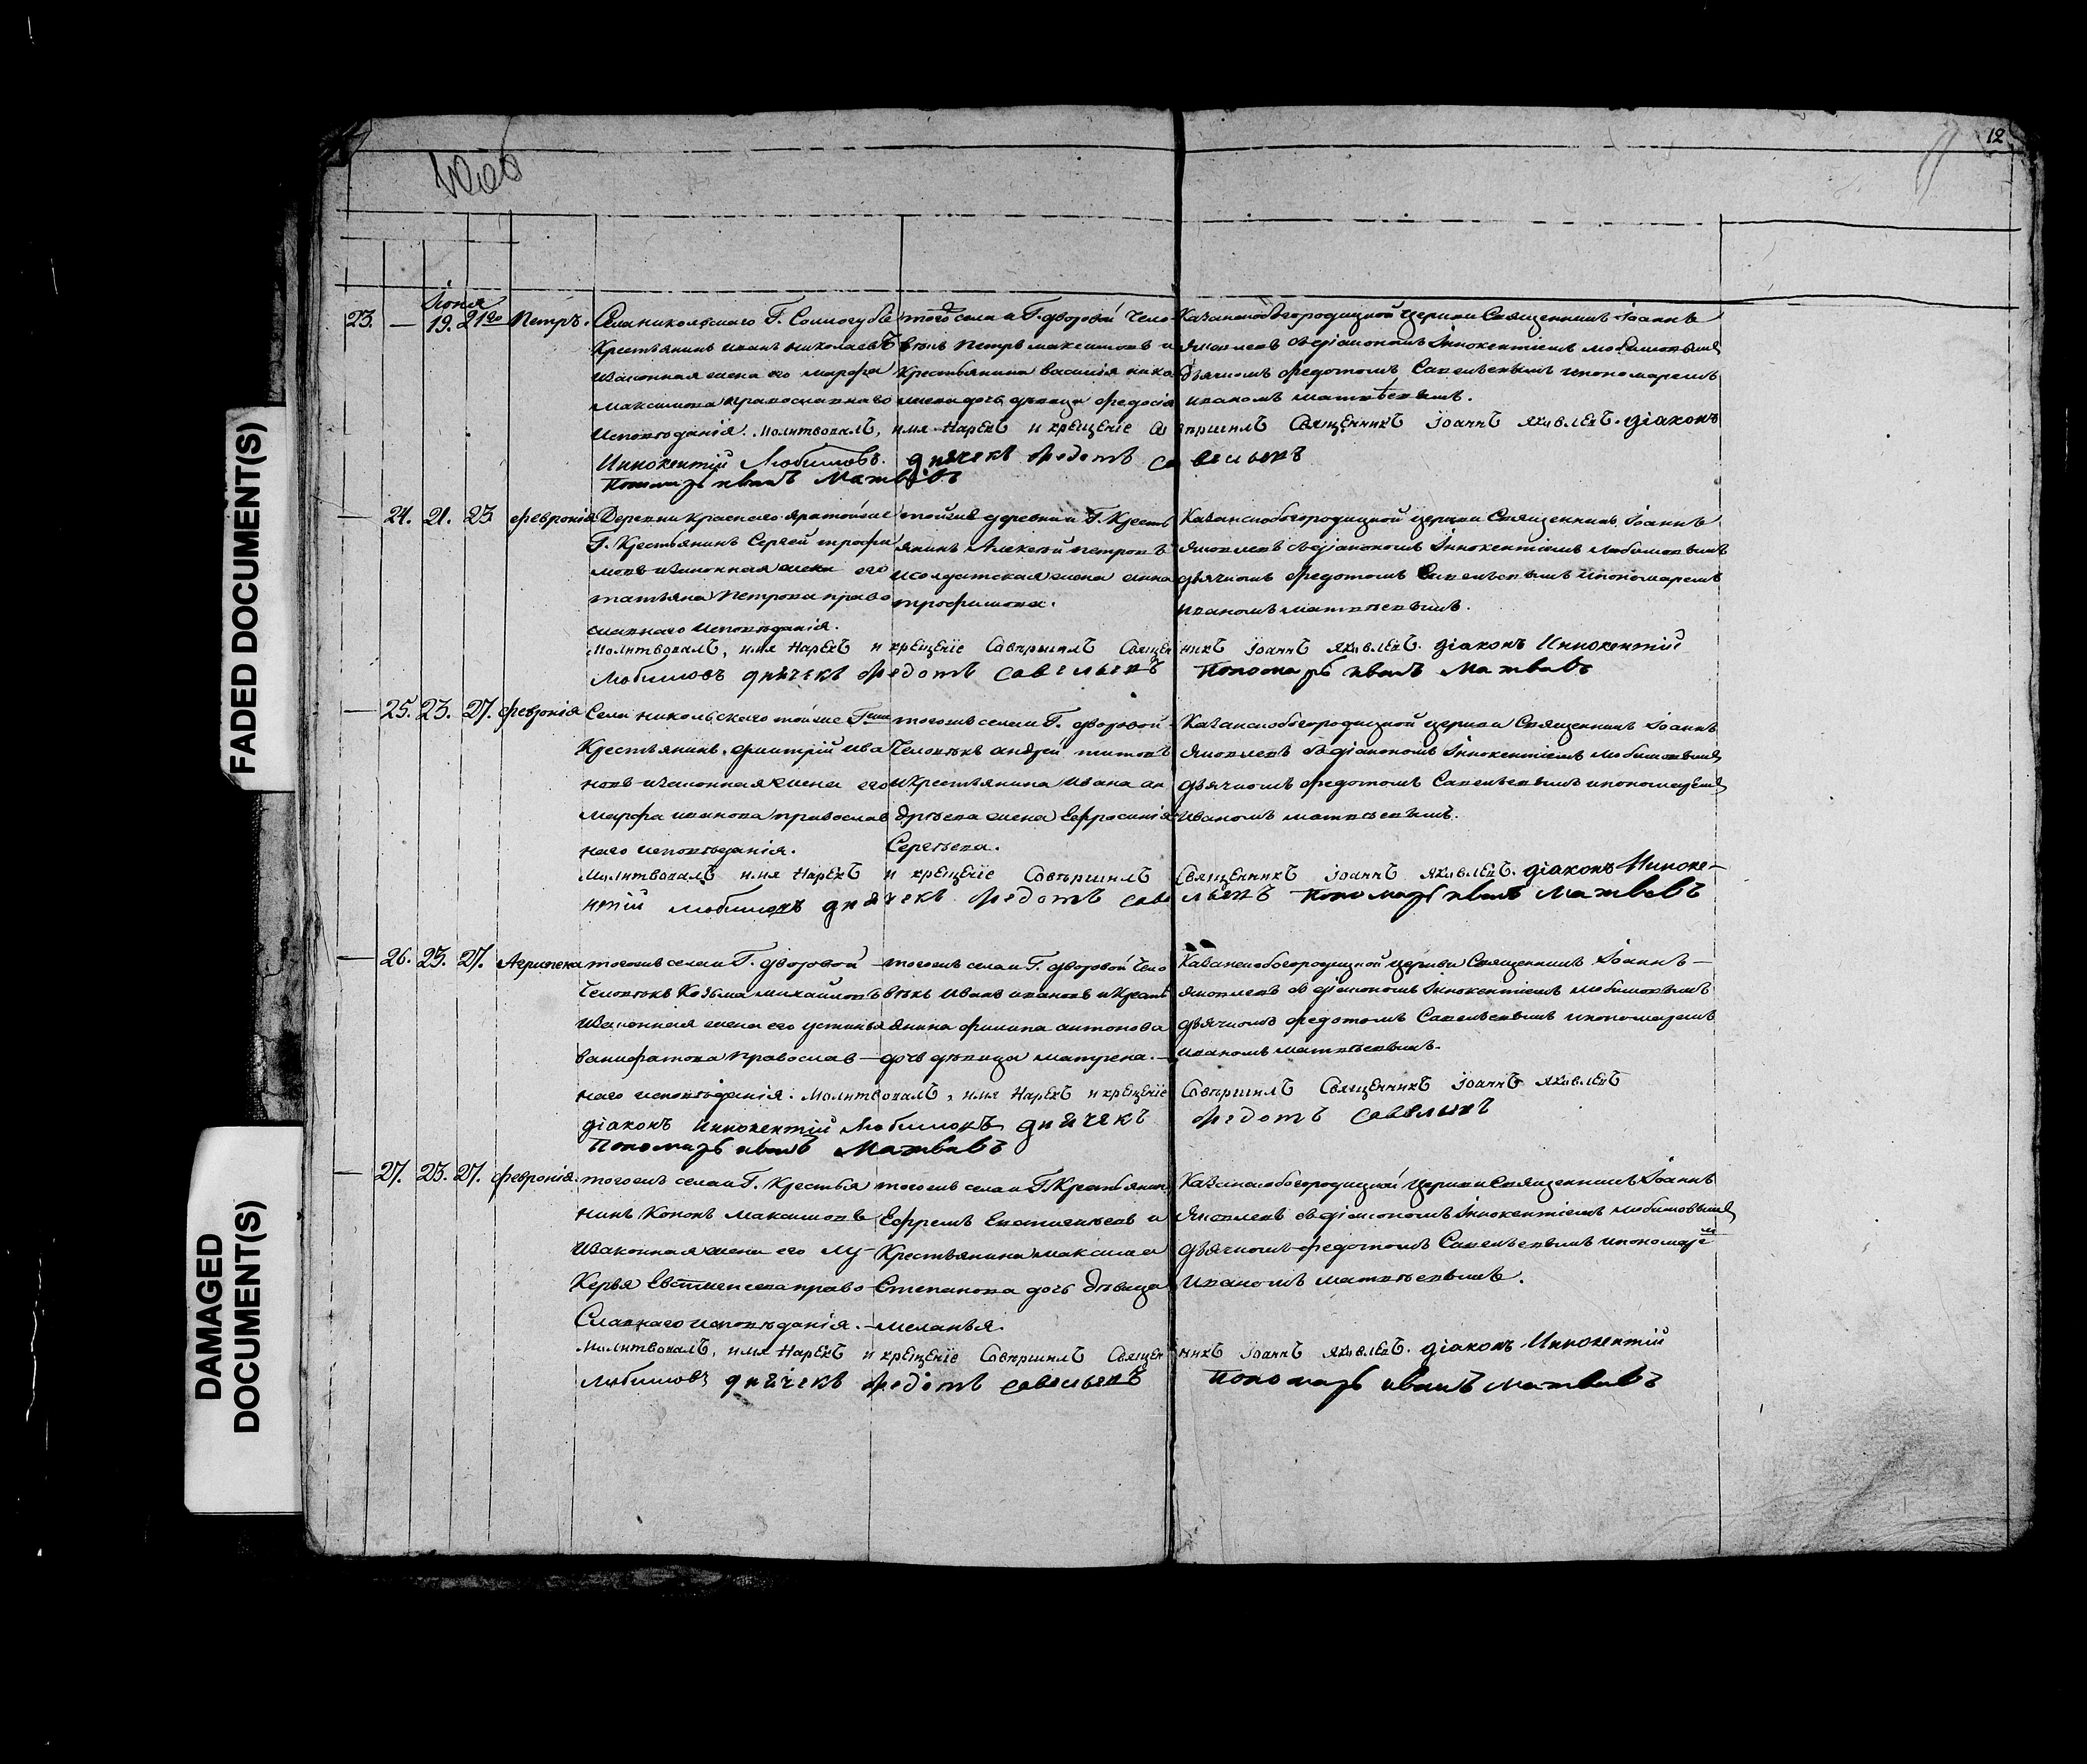 12
FADED DOCUMENT(S)
DAMAGED
DOCUMENT(S)
Іюня
23. — 19. 21го Петръ.
Села никольскаго Г. Соллогубъ
Крестьянинъ иванъ николаевъ
изаконная жена его марфа
максимова православнаго
Исповѣданія.
тогожъ села и Г. дворовой чело
вѣкъ петръ максимовъ и
Крестьянина василія
дочь дѣвица федосія
Казанскобогородицкой церкви Священникъ Іоаннъ
Яковлевъ съ діакономъ Іннокентіемъ любимовымъ
дьячкомъ федотомъ Савельевымъ и пономаремъ
иваномъ матвѣевымъ.
молитвовалъ, имя нарекъ и крещеніе совершилъ Священникъ Іоаннъ Яковлевъ. діаконъ
Иннокентій Любимовъ. дьячекъ Федотъ савельевъ
Пономарь иванъ Матвѣвъ
— 24. 21. 23 февронія
Деревни краснаго
Г. Крестьянинъ Сергей трофи
мовъ изаконная жена его
татьяна Петрова право
славнаго исповѣданія.
тойжъ деревни и Г. Кресть
янинъ Алексей петровъ
и солдатская жена анна
трофимова.
Казанскобогородицкой церкви Священникъ Іоаннъ
Яковлевъ съ діакономъ Іннокентіемъ Любимовымъ
дьячкомъ федотомъ Савельевымъ и пономаремъ
иваномъ матвѣевымъ.
молитвовалъ, имя нарекъ и крещеніе совершилъ Священникъ Іоаннъ Яковлевъ. діаконъ Иннокентій
Любимовъ дьячекъ Федотъ савельевъ Пономарь иванъ Матвѣвъ
— 25. 23. 27. февронія
Села никольскаго тойже
Крестьянинъ, димитрій ива
новъ изаконная жена его
марфа иванова православ
наго исповѣданія.
тогожъ села и Г. дворовой
Человѣкъ андрей титовъ
и крестьянина ивана ан
дрѣева жена Ефросинія
Сергѣева.
Казанскобогородицкой церкви Священникъ Іоаннъ
Яковлевъ съ діакономъ Іннокентіемъ любимовымъ
дьячкомъ федотомъ Савельевымъ и пономаремъ
Иваномъ матвѣевымъ.
молитвовалъ имя нарекъ и крещеніе совершилъ Священникъ Іоаннъ Яковлевъ. діаконъ Инноке-
нтій любимовъ дьячекъ Федотъ савельевъ Пономарь иванъ Матвѣвъ
— 26. 23. 27. Агрипена
тогожъ села и Г. дворовой
Человѣкъ Козьма михайловъ
изаконная жена его устинья
ванифатова православ—
наго исповѣданія.
—тогожъ села и Г. дворовой чело
вѣкъ иванъ ивановъ и крестъ
янина филипа антонова
—дочь дѣвица матрена.—
Казанскобогородицкой церкви Священникъ Іоаннъ—
Яковлевъ съ діакономъ Іннокентіемъ любимовымъ
дьячкомъ федотомъ Савельевымъ и пономаремъ
иваномъ матвѣевымъ.
молитвовалъ, имя нарекъ и крещеніе совершилъ Священникъ Іоаннъ Яковлевъ
діаконъ Иннокентій Любимовъ дьячекъ Федотъ савельевъ
Пономарь иванъ Матвѣвъ
— 27. 23. 27. февронія.
тогожъ села и Г. Крестья
нинъ Кононъ максимовъ
изаконная жена его Лу-
Керья Евстигнеева право
Славнаго исповѣданія.
тогожъ села и Г. Крестьянинъ
Ефремъ Евстигнѣевъ и
Крестьянина максима
Степанова дочь дѣвица
—меланья.
Казанскобогородицкой церкви Священникъ Іоаннъ
Яковлевъ съ діакономъ Іннокентіемъ любимовымъ
дьячкомъ федотомъ Савельевымъ и пономаремъ
иваномъ матвѣевымъ.
молитвовалъ, имя нарекъ и крещеніе совершилъ Священникъ Іоаннъ Яковлевъ. діаконъ Иннокентій
Любимовъ дьячекъ Федотъ савельевъ Пономарь иванъ матвѣвъ